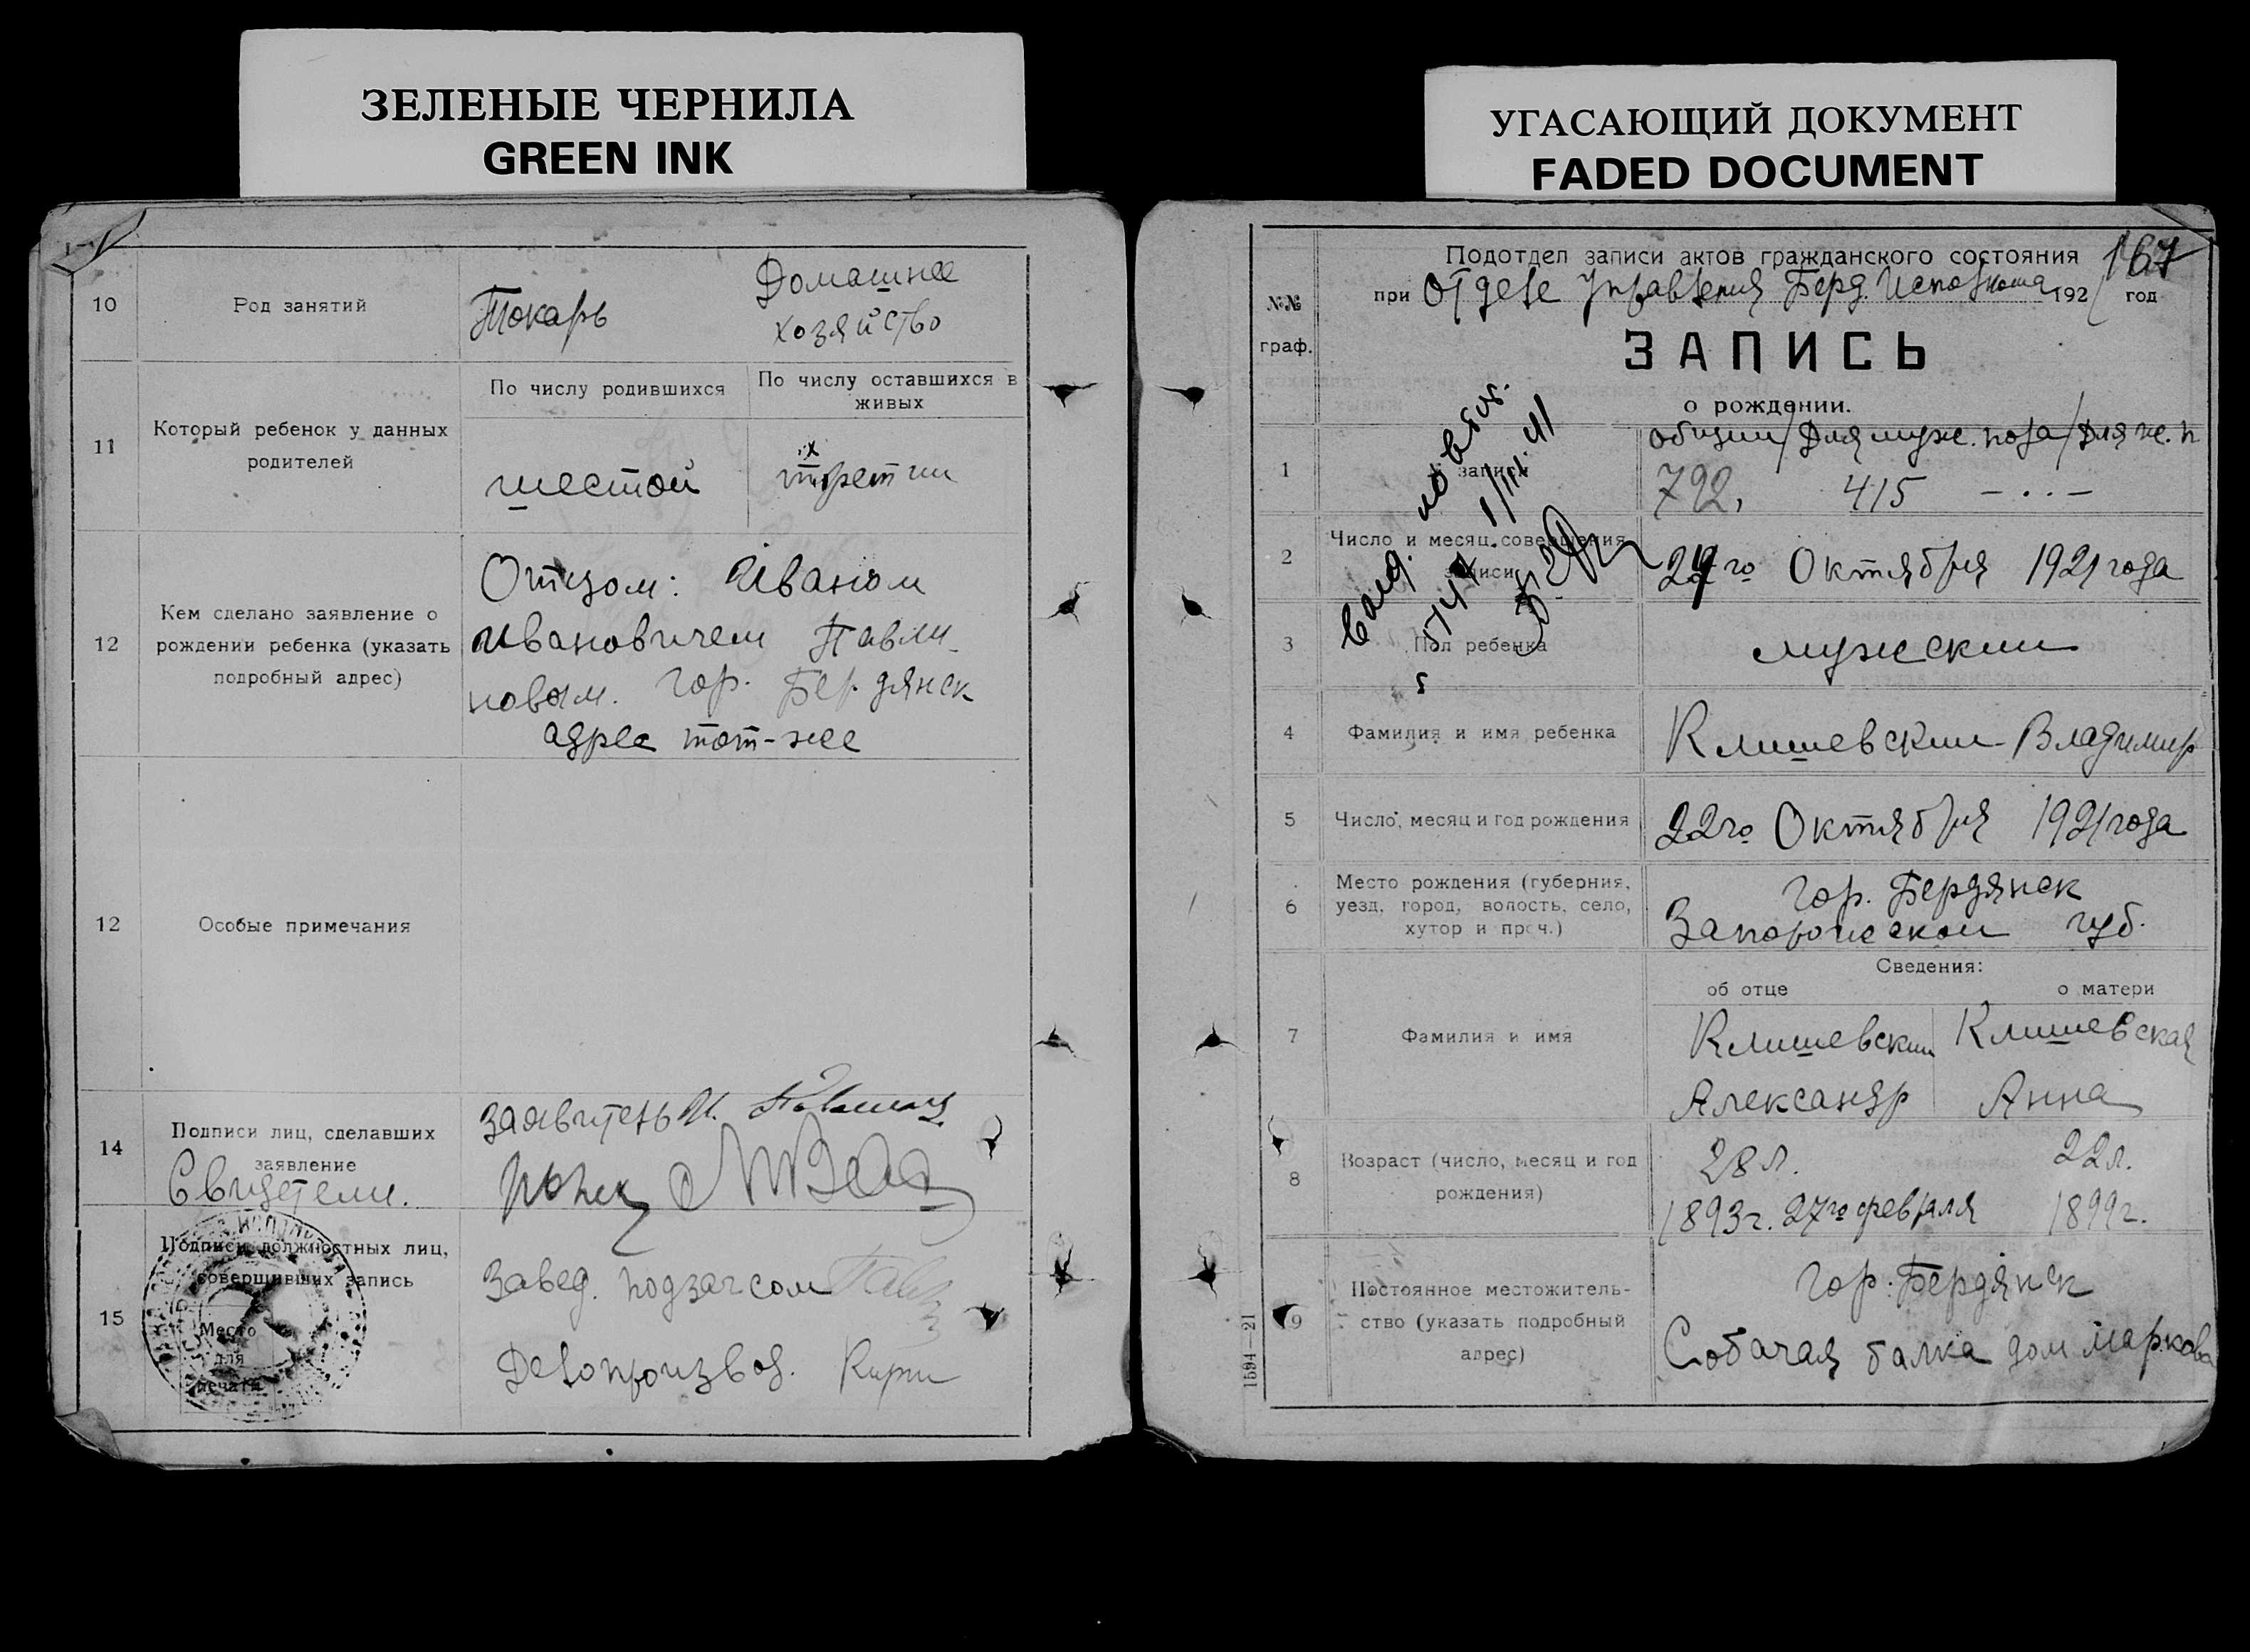 ЗЕЛЕНЫЕ ЧЕРНИЛА
GREEN INK
10
Род занятий
Токарь
Домашнее
хозяйство
11
Который ребенок у данных
родителей
По числу родившихся
По числу оставшихся в
живых
шестой
третии
12
Кем сделано заявление о
рождении ребенка (указать
подробный адрес)
Отцом: Иваном
Ивановичем Павли-
новым. гор. Бердянск
адрес тот-же
12
Особые примечания
14
Подписи лиц, сделавших
заявление
Свидетели.
заявитель И.
15
Подписи должностных лиц,
совершивших запись
Место
для
печати
Завед. подзагсом
Делопроизвод.
УГАСАЮЩИЙ ДОКУМЕНТ
FADED DOCUMENT
№№
граф.
Подотдел записи актов гражданского состояния
167
при Отделе Управления Берд. Исполкома 1921 год
ЗАПИСЬ
о рождении.
1
записи
общии/Для муж. пола/Для ж. п
792, 415 - . . -
2
Число и месяц совершения
записи
24го Октября 1921 года
3
Пол ребенка
мужскии
4
Фамилия и имя ребенка
Клишевскии Владимир
5
Число, месяц и год рождения
22го Октября 1921 года
6
Место рождения (губерния,
уезд, город, волость, село,
хутор и проч.)
Гор. Бердянск
Запорожскои губ.
Сведения:
об отце
о матери
7
Фамилия и имя
Клишевскии
Александр
Клишевская
Анна
8
Возраст (число, месяц и год
рождения)
28 л.
1893г. 27го февраля
22 л.
1899г.
9
Постоянное местожитель-
ство (указать подробный
адрес)
Гор. Бердянск
Собачая балка дом Маркова
1594—21